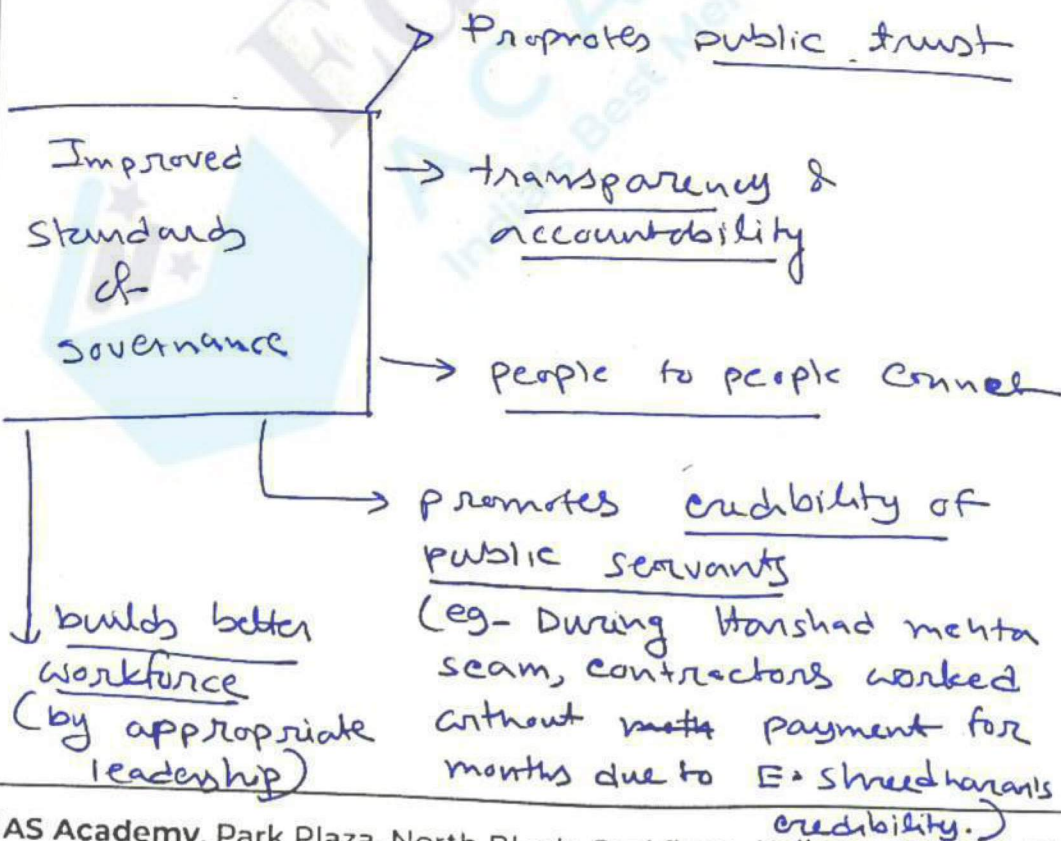 Proprotes public trust
Improved
standards
of
governance
transparency &
accountability
people to people connet
promotes credibility of
public servants
(eg- During Harshad mehta
scam, contractors worked
without payment for
months due to E. Shreedharan's
credibility.)
builds better
workforce
(by appropriate
leadership)
India's Best
AS Academy, Park Plaza, North Block